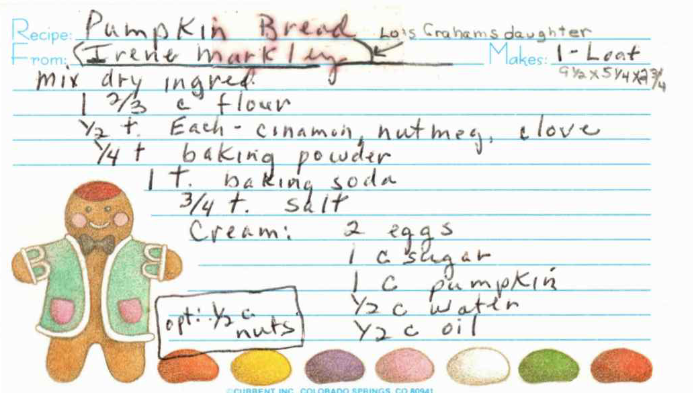 Recipe: Pumpkin Bread Lois Grahams daughter
From: Irene Markley Makes: 1-Loaf
9 1/2 x 5 1/4 x 2 3/4
mix dry ingred.
1 2/3 c flour
1/2 t. Each - cinamon, nutmeg, clove
1/4 t baking powder
1 t. baking soda
3/4 t. salt
Cream: 2 eggs
1 c sugar
1 c pumpkin
1/2 c water
1/2 c oil
opt: 1/2 c
nuts
©CURRENT, INC., COLORADO SPRINGS, CO 80941